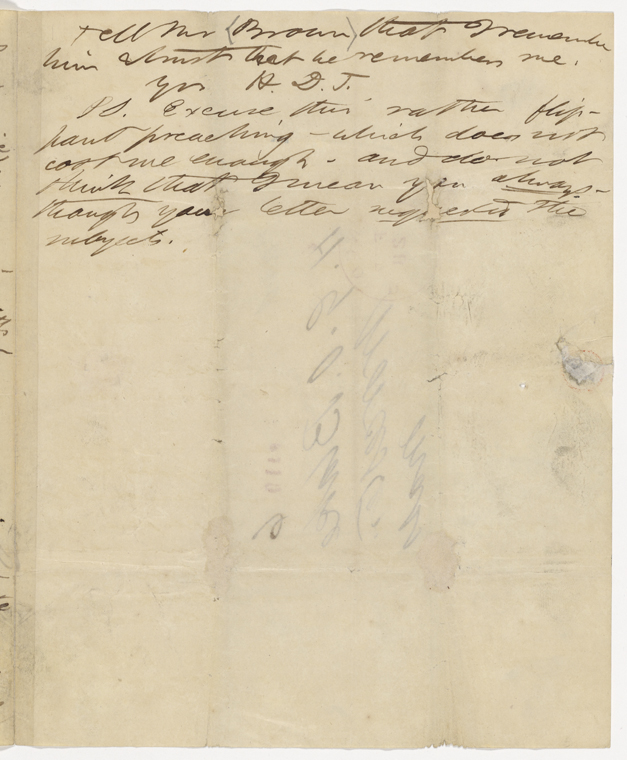 Tell Mr (Brown) that I remember
him & trust that he remembers me.
Yrs H. D. T.
P.S. Excuse this rather flip-
pant preaching - which does not
cost me enough - and do not
think that I mean you always-
though your letter requested the
subjects.